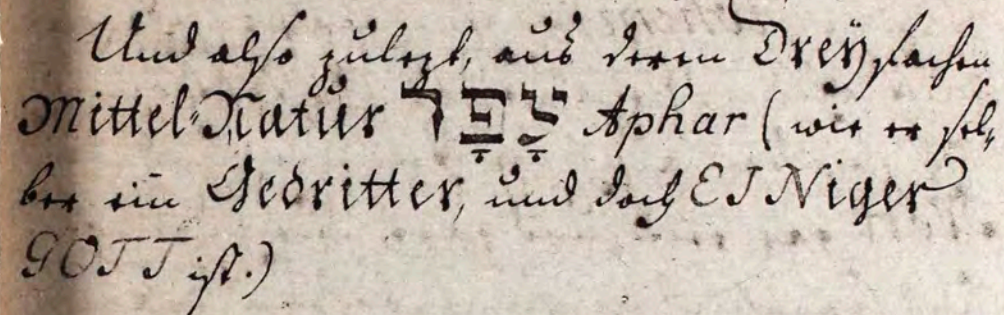 Und also zulezt, aus deren Dreyfachen
Mittel-Natur עָפָר Aphar (wie er sel-
ber ein Gedritter, und doch EINiger
GOTT ist.)